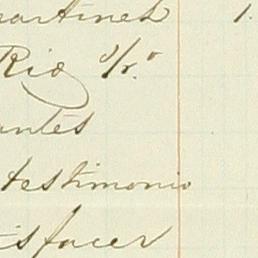 artines 1.
Rio s/r.º
antes
testimonio
isfacer